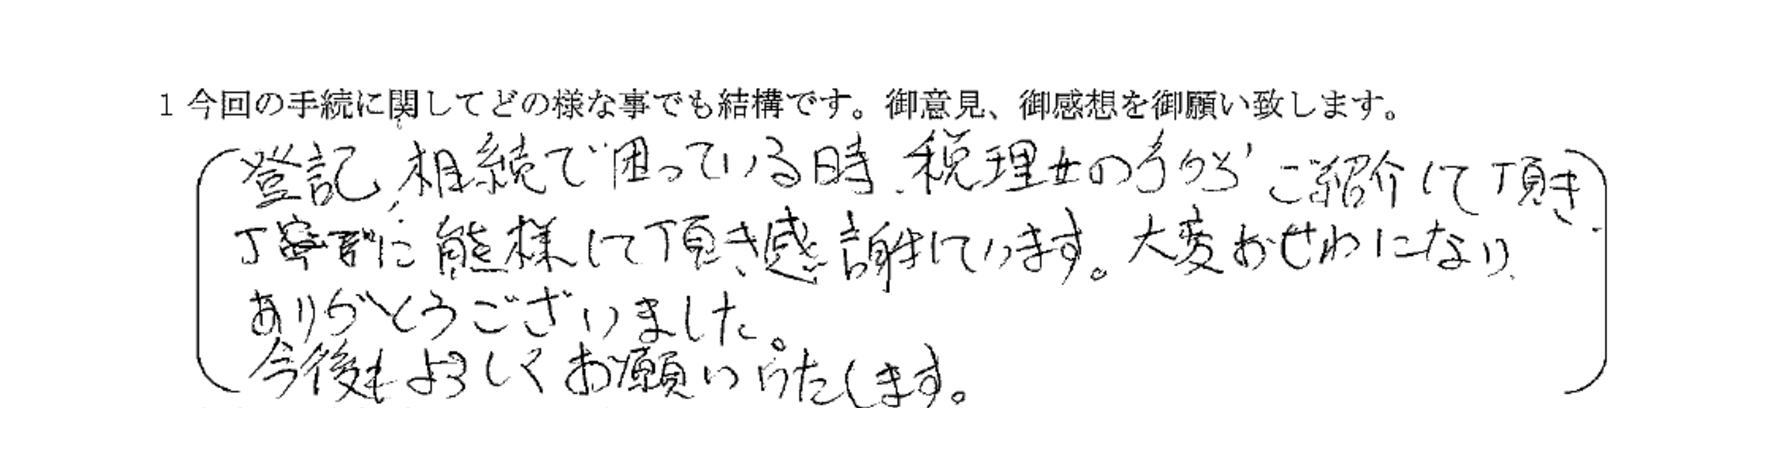 1 今回の手続に関してどの様な事でも結構です。御意見、御感想を御願い致します。
登記、相続で困っている時、税理士の方から ご紹介して頂き
丁寧に 態様して頂き感謝しています。大変おせわになり、
ありがとうございました。
今後もよろしくお願いいたします。